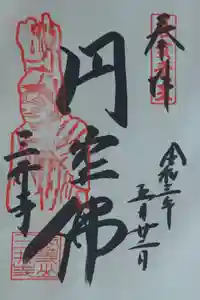 奉拝
令和三年
五月廿二日
円空佛
三井寺